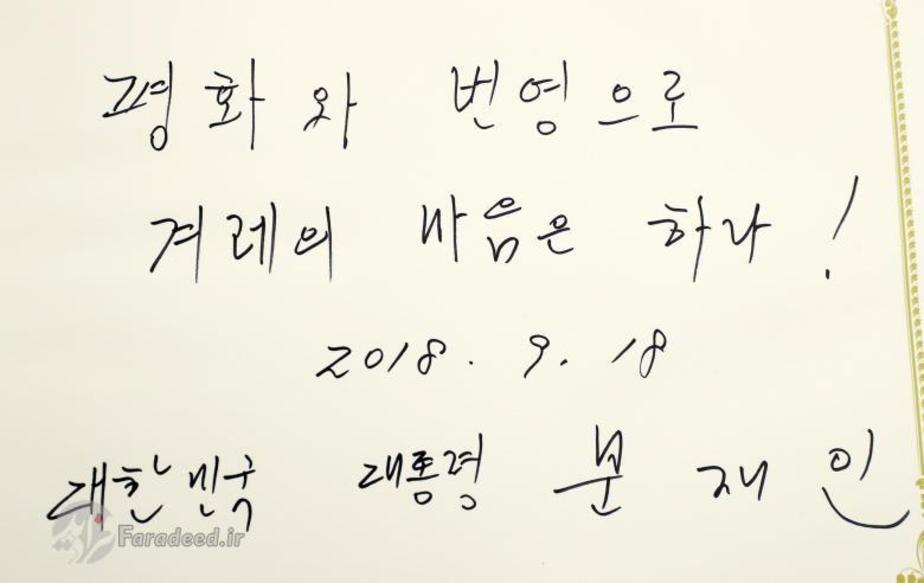 평화와 번영으로
겨레의 마음은 하나!
2018. 9. 18
대한민국 대통령 문재인
Faradeed.ir